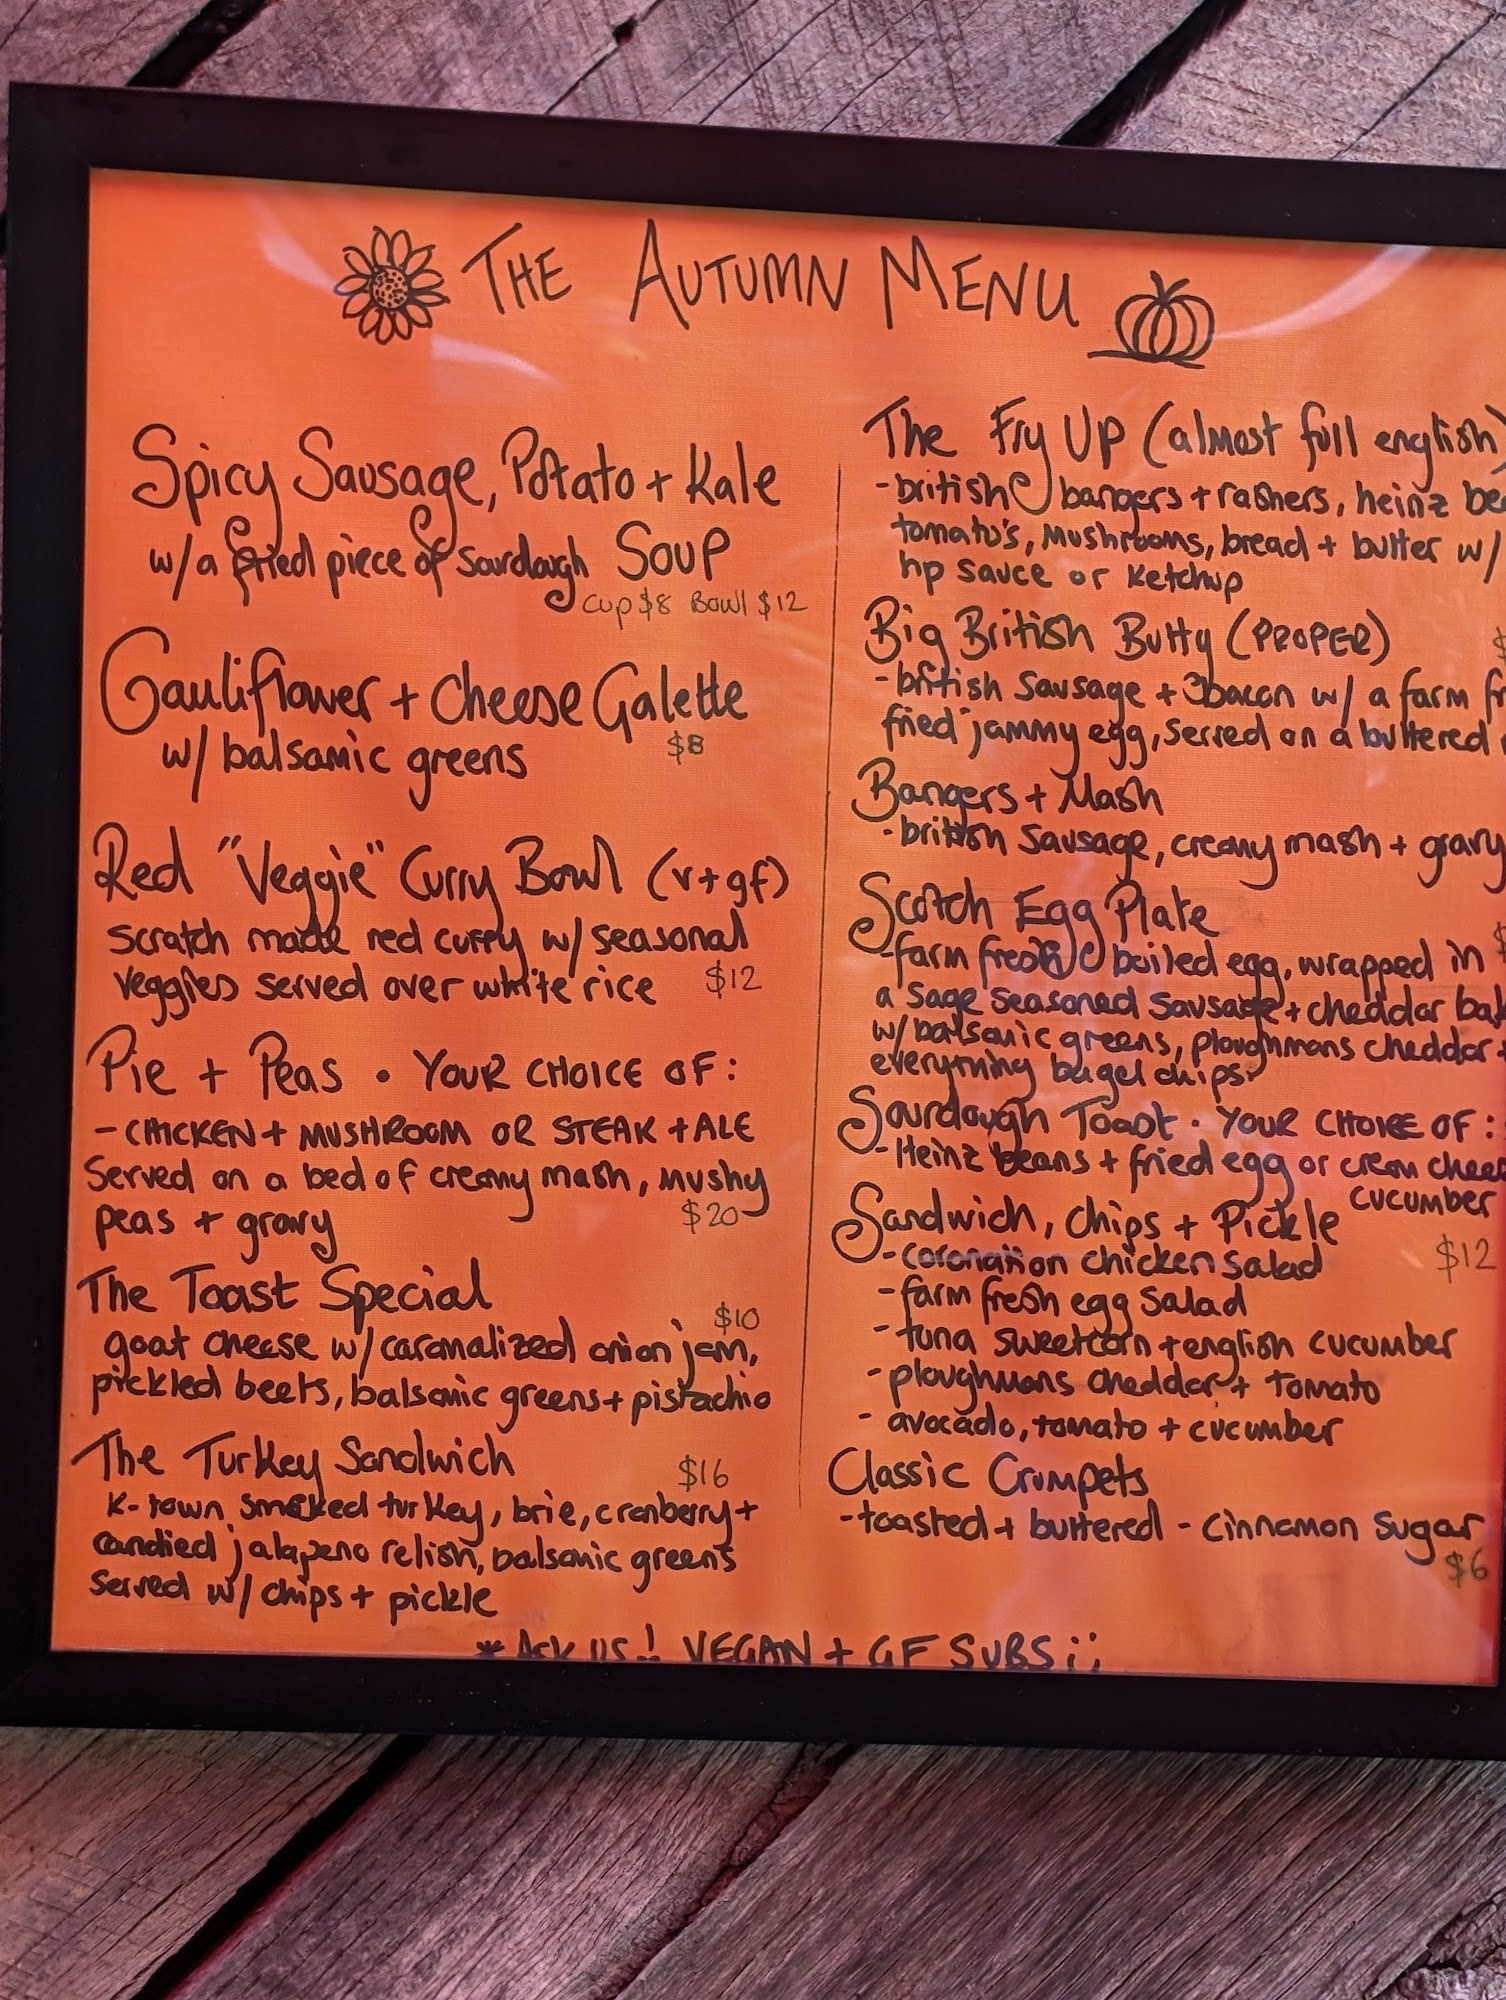 THE AUTUMN MENU
Spicy Sausage, Potato + Kale
w/a fried piece of sourdough SOUP
Cup $8 Bowl $12
Cauliflower + Cheese Galette
w/ balsamic greens $8
Red "Veggie" Curry Bowl (v+gf)
scratch made red curry w/ seasonal
veggies served over white rice $12
Pie + Peas • YOUR CHOICE OF:
- CHICKEN + MUSHROOM OR STEAK + ALE
Served on a bed of creamy mash, mushy
peas + gravy $20
The Toast Special
$10
goat cheese w/ caramalized onion jam,
pickled beets, balsamic greens + pistachio
The Turkey Sandwich $16
K-town smoked turkey, brie, cranberry +
candied jalapeno relish, balsamic greens
Served w/ chips + pickle
The Fry Up (almost full english)
- british bangers + rashers, heinz
tomato's, mushrooms, bread + butter w/
hp sauce or ketchup
Big British Butty (PROPER)
- british sausage + bacon w/ a farm
fried jammy egg, served on a buttered
Bangers + Mash
- british sausage, creamy mash + gravy
Scotch Egg Plate
- farm fresh boiled egg, wrapped in
a sage seasoned sausage + cheddar
w/ balsamic greens, ploughmans cheddar +
everything bagel chips.
Sourdough Toast • YOUR CHOICE OF:
- Heinz beans + fried egg or cream
cucumber
Sandwich, Chips + Pickle
$12
- coronation chicken salad
- farm fresh egg salad
- tuna sweetcorn + english cucumber
- ploughmans cheddar + tomato
- avocado, tomato + cucumber
Classic Crumpets
- toasted + buttered - cinnamon sugar
$6
* ASK US! VEGAN + GF SUBS